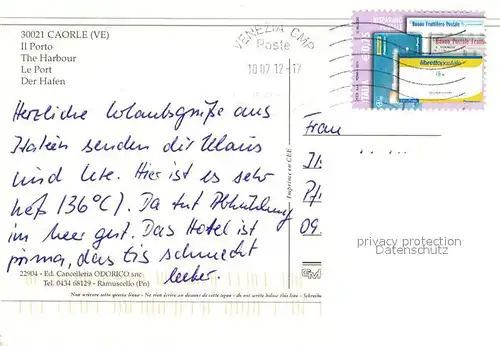 30021 CAORLE (VE)
Il Porto
The Harbour
Le Port
Der Hafen
VENEZIA CMP
Poste
10.07.12-17
Buono Fruttifero Postale
librettopostale
ITALIA
Herzliche Urlaubsgrüße aus
Italien senden dir Klaus
und Ute. Hier ist es sehr
heiß (36°C). Da tut Abkühlung
im Meer gut. Das Hotel ist
prima, das Eis schmeckt
lecker.
Frau
09.
privacy protection
Datenschutz
Imprime en CEE
22904 - Ed. Cancelleria ODORICO snc
Tel. 0434 68129 - Ramuscello (Pn)
Non scrivere sotto questa linea - Ne rien écrire au dessous de cette ligne - do not write below this line - Schreiben